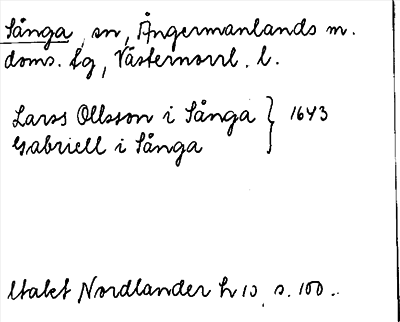 Sånga, sn, Ångermanlands m.
doms. fg, Västernorrl. l.
Larss Ollsson i Sånga } 1643
Gabriell i Sånga
Utakt Nordlander h 10, s. 100.